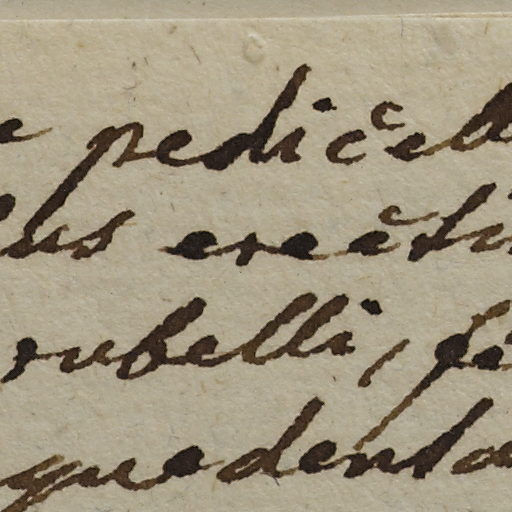 pedicell
lus erecti
rubelli, fi
quedenta